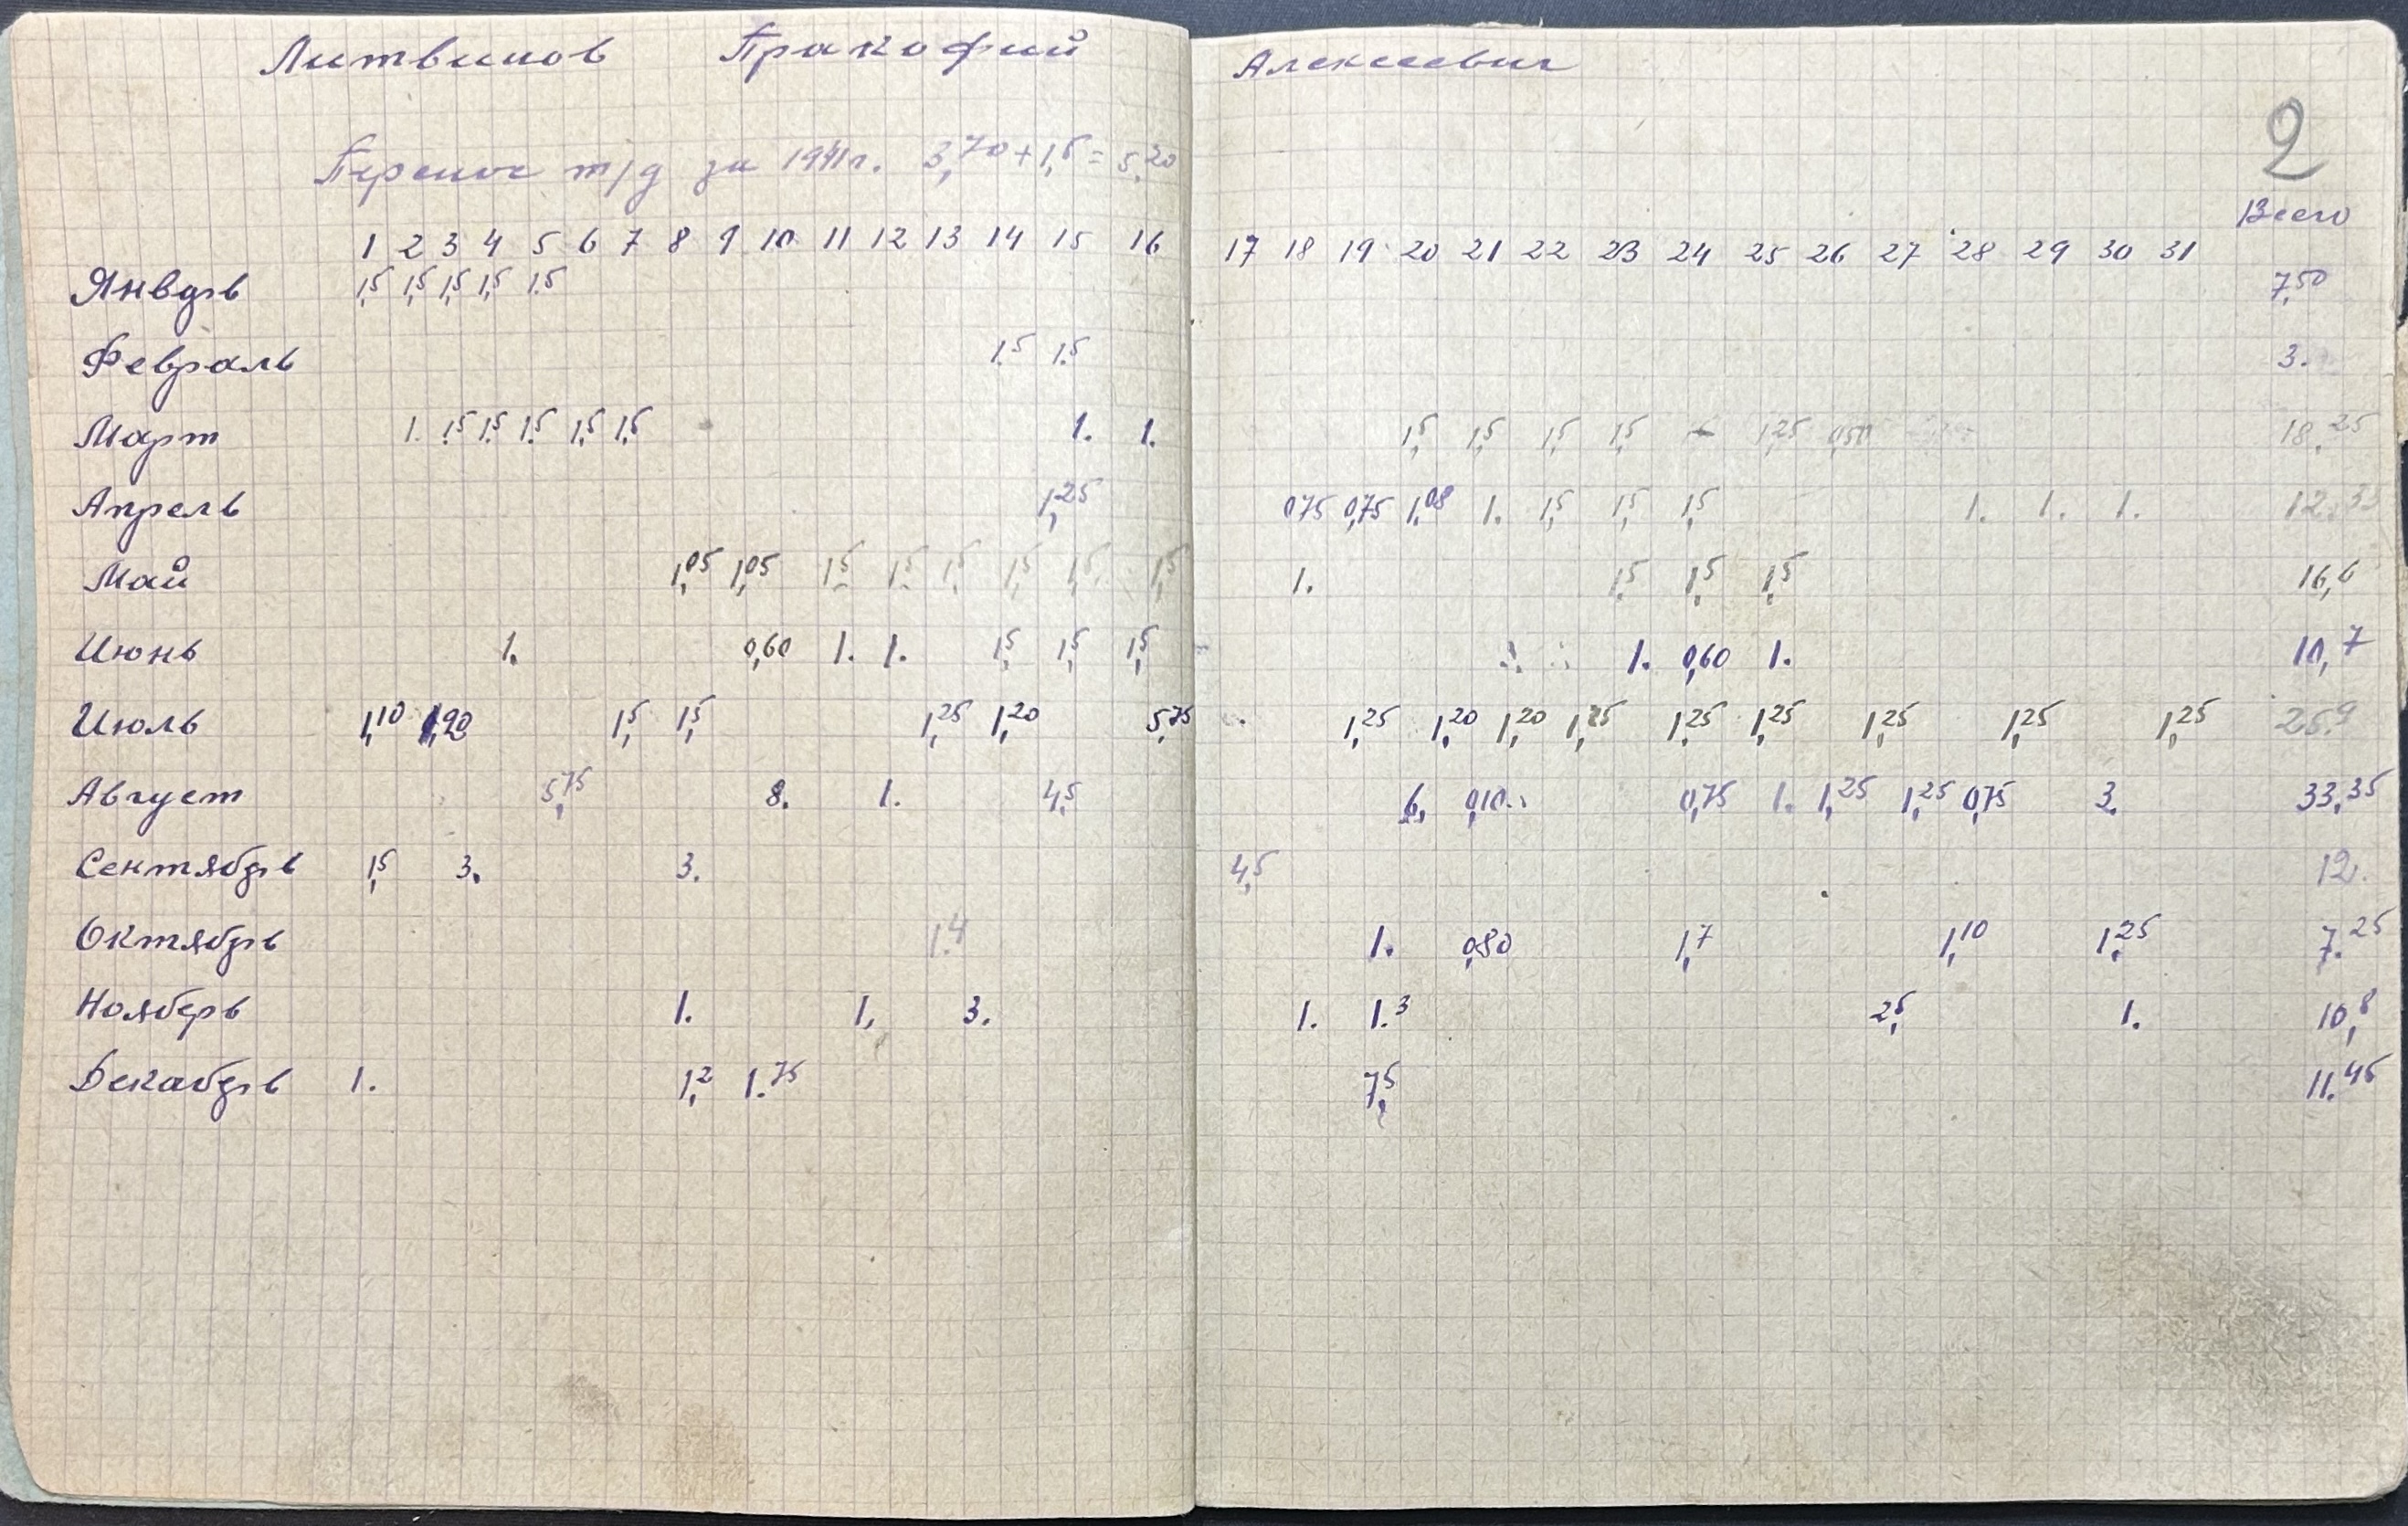 Литвинов Пракофий Алексеевич
2
Перенос т/д за 1941г. 3,70+1,5=5,20
Всего
1 2 3 4 5 6 7 8 9 10 11 12 13 14 15 16 17 18 19 20 21 22 23 24 25 26 27 28 29 30 31
Январь 1,5 1,5 1,5 1,5 1.5 7,50
Февраль 1.5 1.5 3.
Март 1. 1.5 1.5 1.5 1,5 1,5 1. 1. 1,5 1,5 1,5 1,5 1,25 0,50 18,25
Апрель 1,25 0,75 0,75 1,08 1. 1,5 1,5 1,5 1. 1. 1. 12,33
Май 1,05 1,05 1,5 1,5 1,5 1,5 1,5 1,5 1. 1,5 1,5 1,5 16,6
Июнь 1. 0,60 1. 1. 1,5 1,5 1,5 1. 0,60 1. 10,7
Июль 1,10 1,20 1,5 1,5 1,25 1,20 5,75 1,25 1,20 1,20 1,25 1,25 1,25 1,25 1,25 1,25 25.9
Август 5,75 8. 1. 4,5 6, 0,10 0,75 1. 1,25 1,25 0,75 3. 33,35
Сентябрь 1,5 3. 3. 4,5 12.
Октябрь 1.4 1. 0,80 1,7 1,10 1,25 7.25
Нояберь 1. 1, 3. 1. 1.3 2,5 1. 10,8
Декабрь 1. 1,2 1.75 7,5 11.45